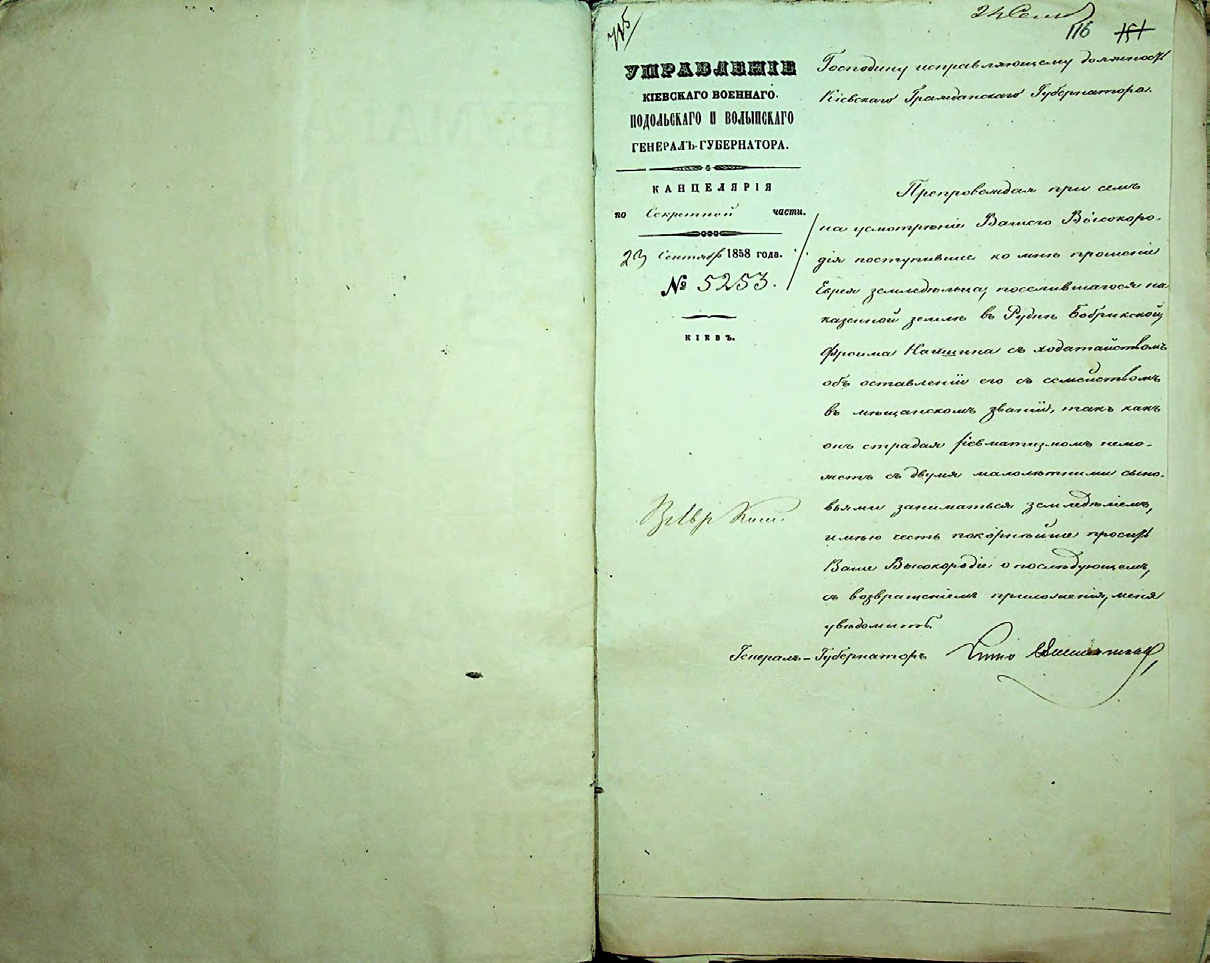 24 Сент
116 151
УПРАВЛЕНІЕ
КІЕВСКАГО ВОЕННАГО.
ПОДОЛЬСКАГО И ВОЛЫНСКАГО
ГЕНЕРАЛЪ-ГУБЕРНАТОРА.
КАНЦЕЛЯРІЯ
по Секретной части.
23 Сентября 1858 года.
№ 5253.
КІЕВЪ.
Господину исправляющему должность
Кіевскаго Гражданскаго Губернатора.
Препровождая при семъ
на усмотрѣніе Вашего Высокоро-
дія поступившее ко мнѣ прошеніе
Еврея земледѣльца, поселившагося на
казенной землѣ въ Руднѣ Бобрикской,
Фроима съ ходатайствомъ
объ оставленіи его съ семействомъ
въ мѣщанскомъ званіи, такъ какъ
онъ страдая ревматизмомъ немо-
жетъ съ двумя малолѣтними сыно-
вьями заниматься земледѣліемъ,
имѣю честь покорнѣйше просить
Ваше Высокородіе о послѣдующемъ,
съ возвращеніемъ приложенія, меня
увѣдомить.
Генералъ-Губернаторъ